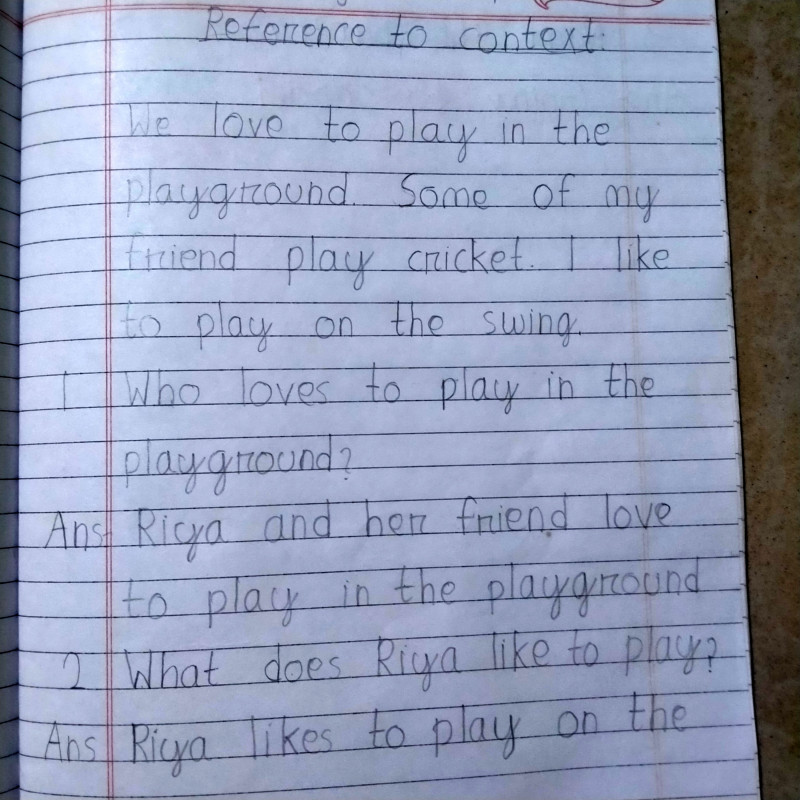 Reference to context:
We love to play in the
playground. Some of my
friend play cricket. I like
to play on the swing.
1 Who loves to play in the
playground?
Ans Riya and her friend love
to play in the playground
2 What does Riya like to play?
Ans Riya likes to play on the